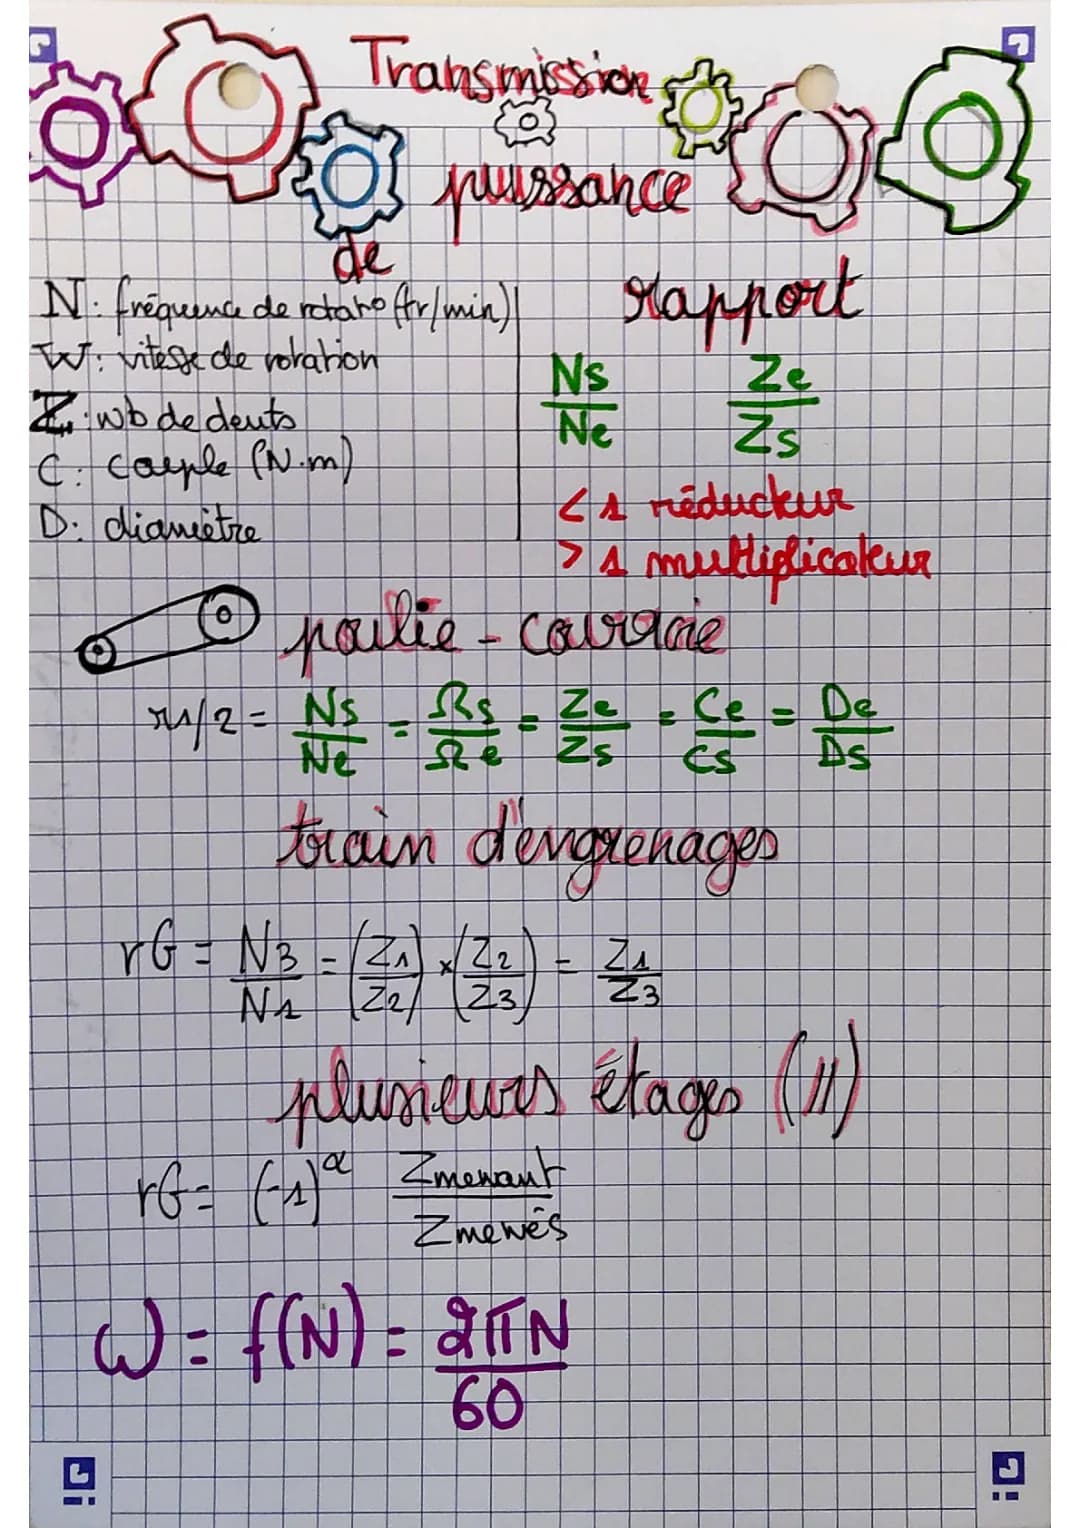 Transmission
de puissance
N: fréquence de rotato (tr/min)
W: vitesse de rotation
Z: nb de dents
C: couple (N.m)
D: diamètre
rapport
Ns/Ne Ze/Zs
< 1 réducteur
> 1 multiplicateur
poulie - courroie
r1/2 = Ns/Ne = Ωs/Ωe = Ze/Zs = Ce/Cs = De/Ds
train d'engrenages
rG = N3/N1 = (Z1/Z2) × (Z2/Z3) = Z1/Z3
plusieurs étages (//)
rG = (-1)^α Zmenant/Zmenés
ω = f(N) = 2πN/60